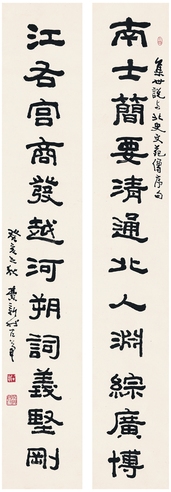 集世說與北史文苑傳序句
南士簡要清通北人淵綜廣博
江右宮商發越河朔詞義堅剛
癸亥之秋